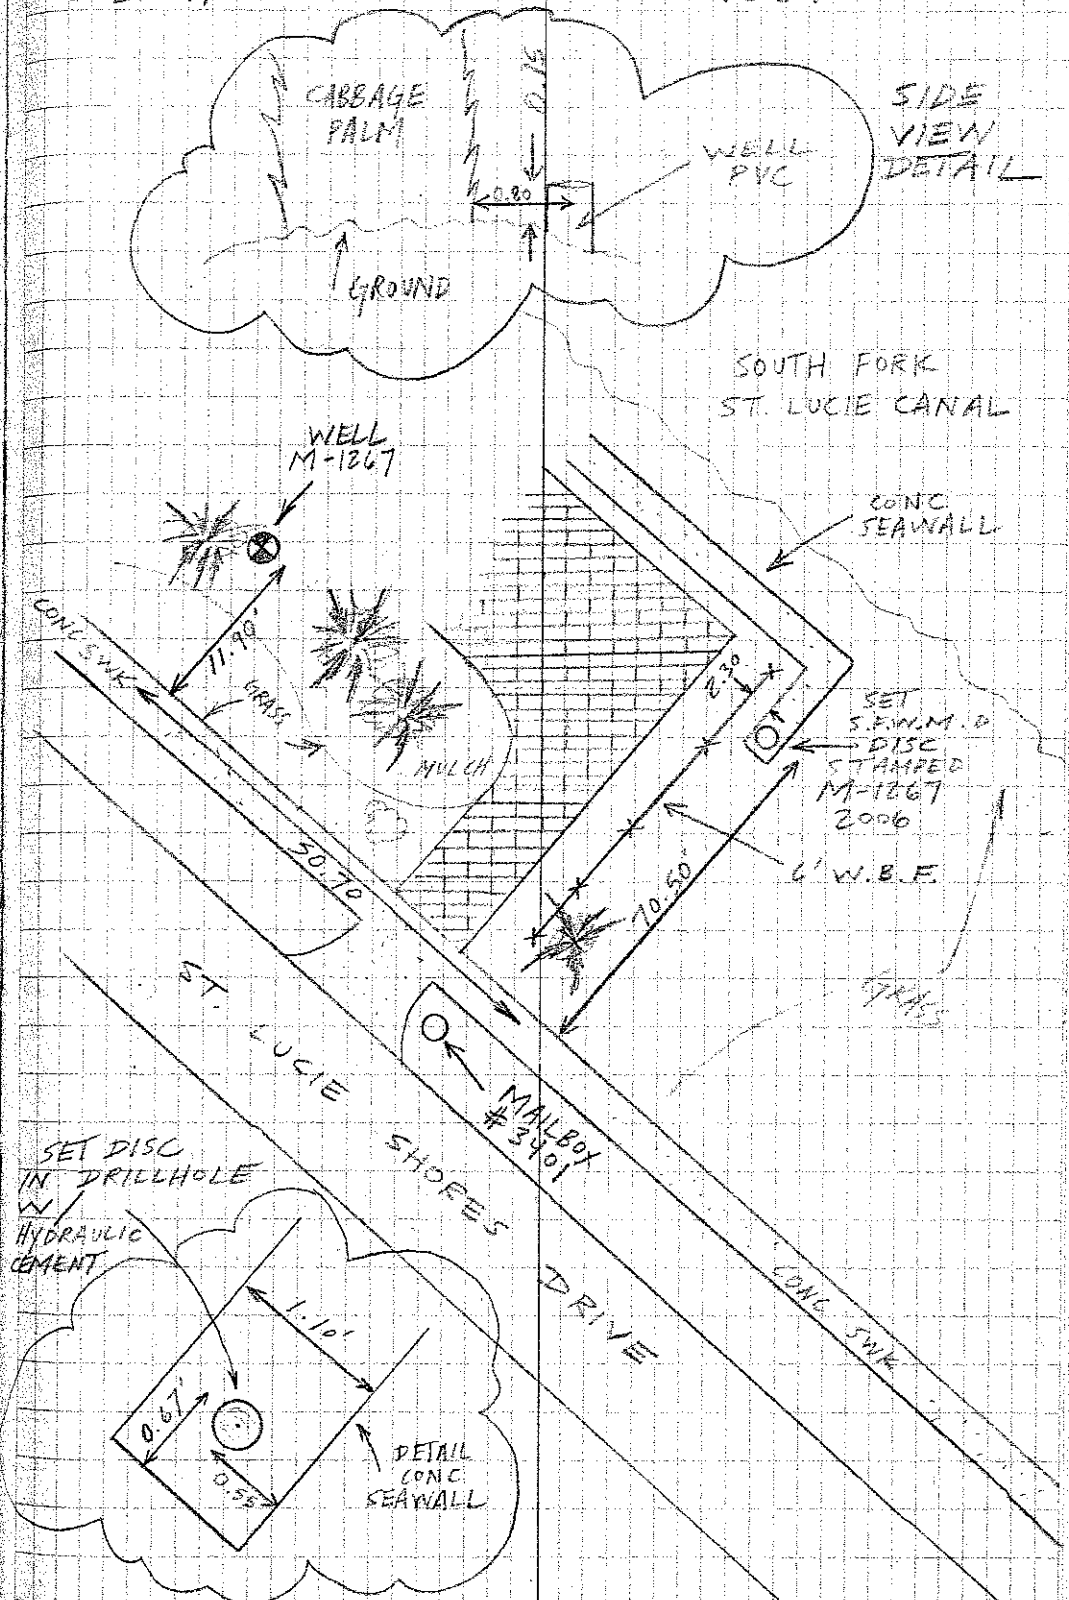 CABBAGE
PALM
0.15
SIDE
VIEW
DETAIL
WELL
PVC
0.80
GROUND
SOUTH FORK
ST. LUCIE CANAL
WELL
M-1267
CONC
SEAWALL
CONC SWK
11.90'
GRASS
MULCH
2.30
SET
S.F.W.M.D
DISC
STAMPED
M-1267
2006
50.70
6' W.B.F.
70.50'
GRASS
ST. LUCIE SHORES DRIVE
MAILBOX
#3401
SET DISC
IN DRILLHOLE
W/
HYDRAULIC
CEMENT
CONC SWK
1.10'
0.67'
0.55
DETAIL
CONC
SEAWALL